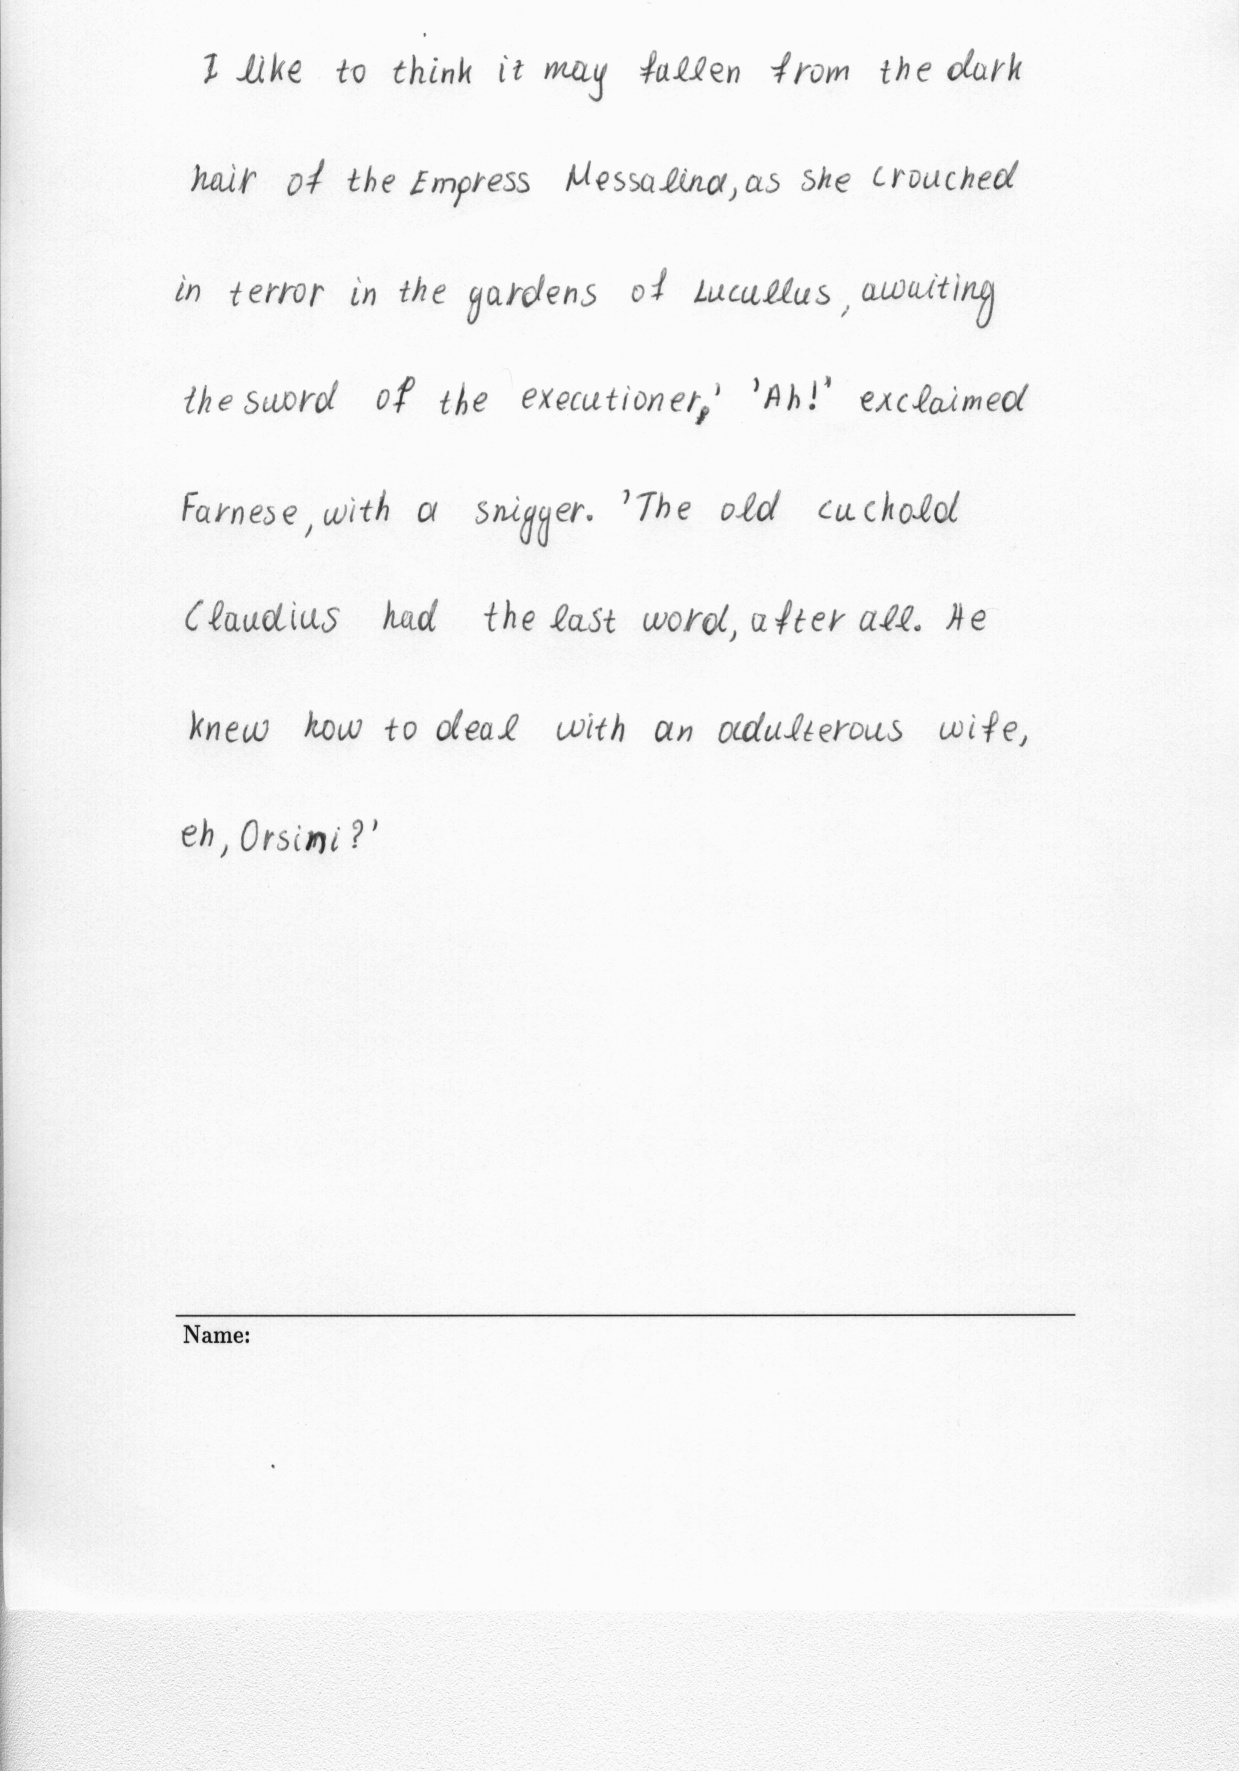 I like to think it may fallen from the dark
hair of the Empress Messalina, as she crouched
in terror in the gardens of Lucullus, awaiting
the sword of the executioner,' 'Ah!' exclaimed
Farnese, with a snigger. 'The old cuckold
Claudius had the last word, after all. He
knew how to deal with an adulterous wife,
eh, Orsini?'
Name: